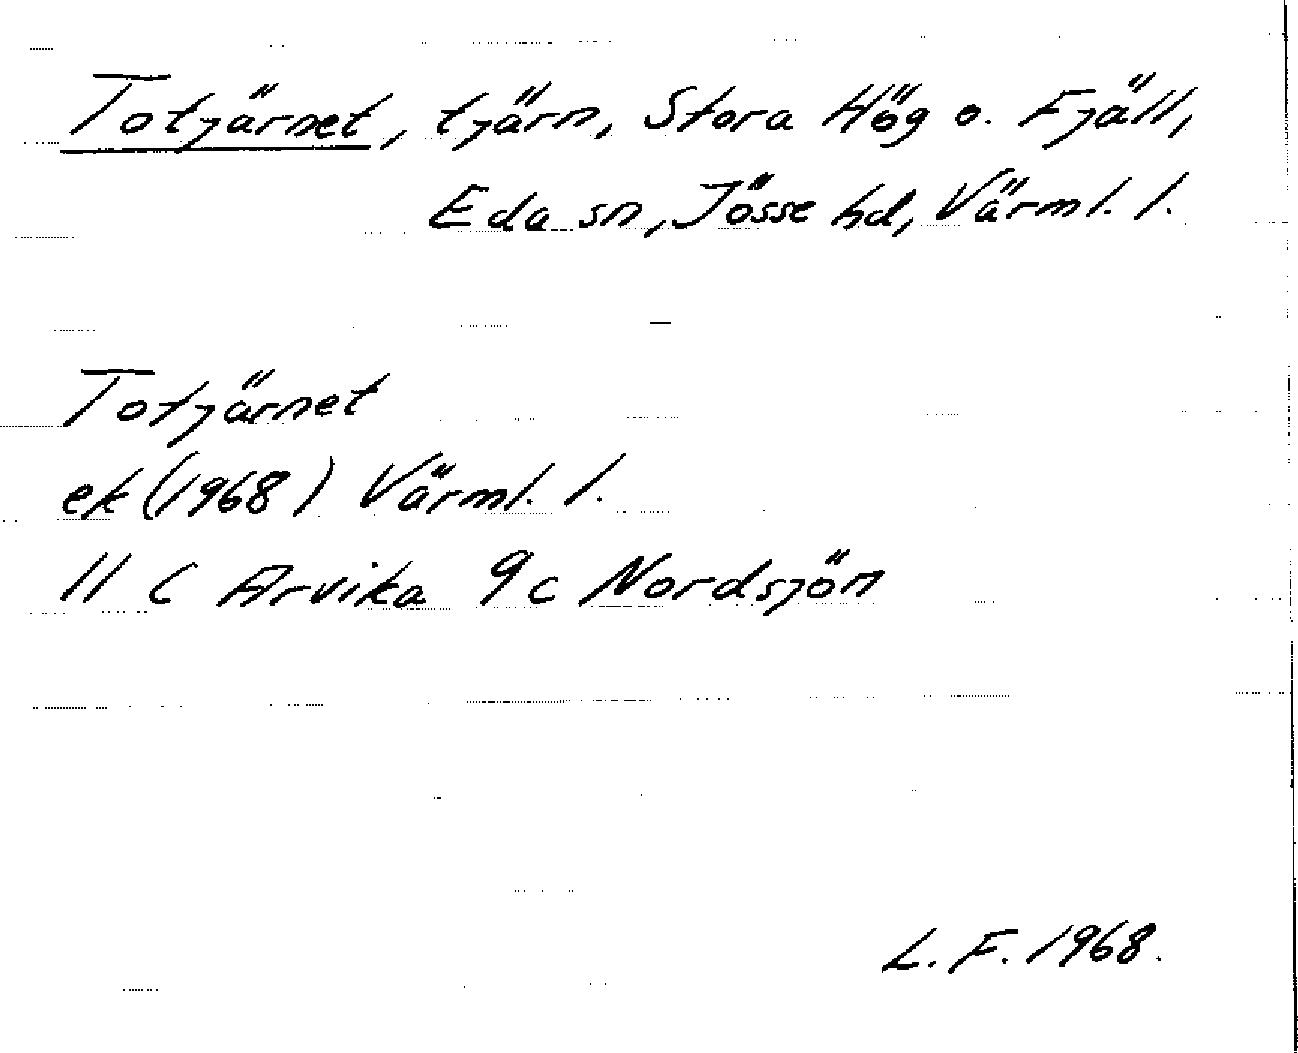 Totjärnet, tjärn, Stora Hög o. Fjäll,
Eda sn, Jösse hd, Värml. l.
Totjärnet
ek (1968) Värml. l.
11 C Arvika 9c Nordsjön
L. F. 1968.